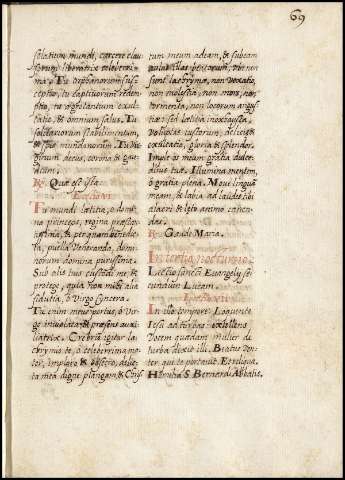 69
solatium mundi, carcere clau
sorum liberatrix celeberri
ma. Tu orphanorum sus
ceptio, tu captivorum redem
ptio, tu ægrotantum exul
tatio, & omnium salus. Tu
solidaciorum stabilimentum,
& spes mundanorum. Tu Vir
ginum decus, corona & gau
dium.
R. Quæ est ista.
Tu mundi lætitia, o domi
na princeps, regina præstan
tissima, & per quam benedic
ta, puella Veneranda, domi
norum domina purissima.
Sub alis tuis custodi me, &
protege, quia non mihi alia
fidutia, ô Virgo syncera.
Tu enim meus portus, ô Vir
go inviolata & præsens auxi
liatrix. Crebrũ igitur la
chrymis te, ô celeberrima ma
ter, imploro & obsecro, delic
ta mea digne plangam, &
tum meum adeam, & subeam
ubi non
sunt lachrymæ, non vexatio,
non molestia, non mors, non
tormenta, non locorum angus
tiæ: sed lætitia inexhausta,
Voluptas iustorum, deliciæ &
exultatio, gloria & splendor.
Imple os meum gratia dulce
dinis tuæ. Illumina mentem,
ô gratia plena. Move linguã
meam, & labia ad laudes tuas
alacri & læto animo canen
das.
R. Gaude Maria.
In tertio nocturno.
Lectio sancti Evangelij se
cundum Lucam.
In illo tempore: Loquente
Iesu ad turbas: extollens
Vocem quædam mulier de
turba dixit illi. Beatus Ven
ter qui te portavit. Et reliqua.
Homilia S. Bernardi Abbatis.